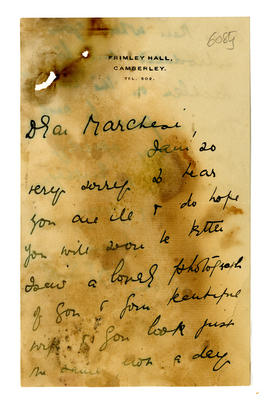 6089
FRIMLEY HALL,
CAMBERLEY.
TEL. 502.
Dear Marchesi,
I am so
very sorry to hear
you are ill & do hope
you will soon be better
I saw a lovely photograph
of you & your beautiful
wife & you look just
the same not a day